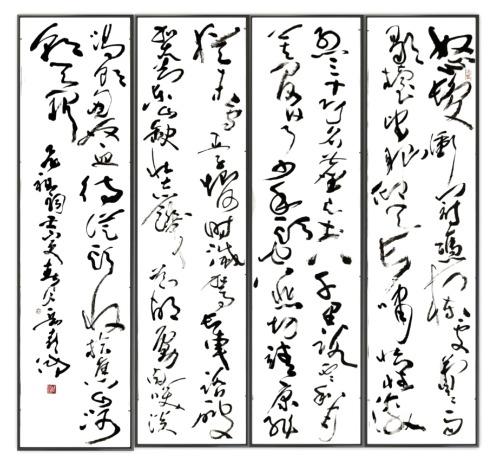 怒髮衝冠憑欄處瀟瀟雨
歇擡望眼仰天長嘯壯懷激
烈三十功名塵與土八千里路雲和月
莫等閒白了少年頭空悲切靖康恥
猶未雪臣子恨何時滅駕長車踏破
賀蘭山缺壯志飢餐胡虜肉笑談
渴飲匈奴血待從頭收拾舊山河
朝天闕